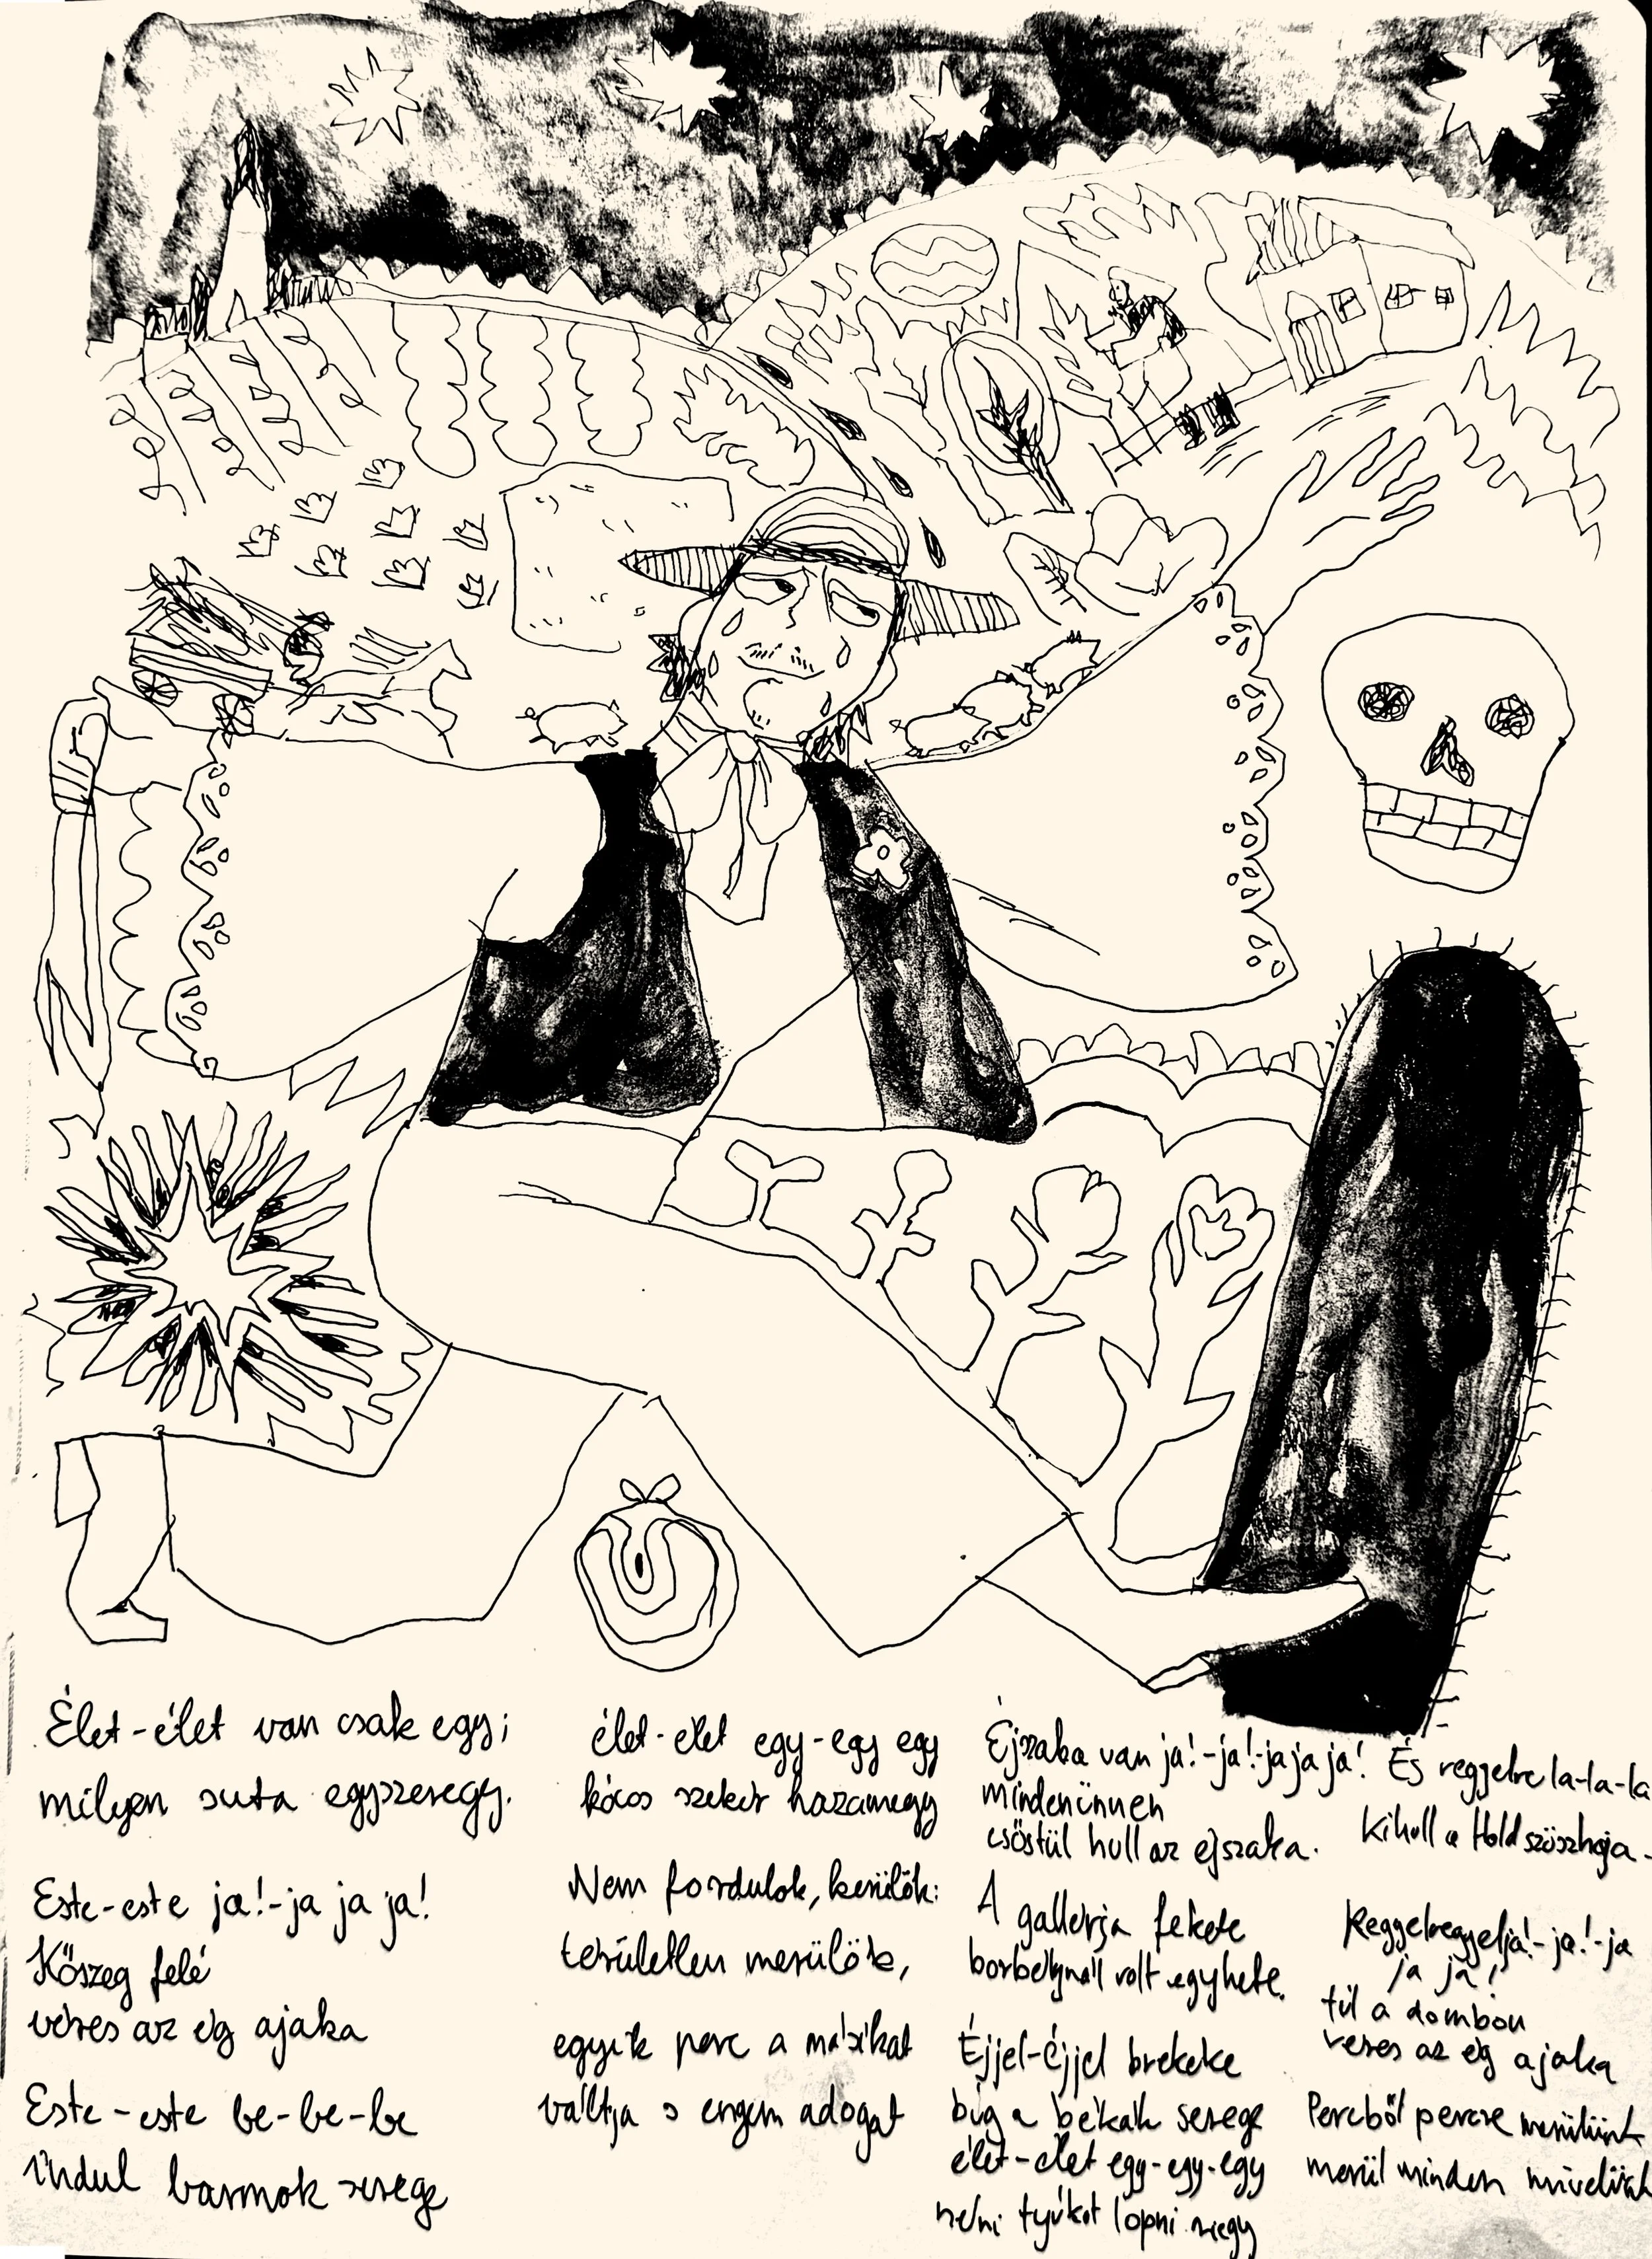 Élet-élet van csak egy;
milyen suta egyszeregy.
Este-este ja!-ja ja ja!
Kőszeg felé
véres az ég ajaka
Este-este be-be-be
indul barmok serege
élet-élet egy-egy egy
kócos szekér hazamegy
Nem fordulok, kerülök:
területlen merülök,
egyik perc a másikat
váltja s engem adogat
Éjszaka van ja!-ja!-ja ja ja!
mindenünnen
csőstül hull az éjszaka.
A gallérja fekete
borbélynál volt egyhete.
Éjjel-éjjel brekeke
búg a békák serege
élet-élet egy-egy-egy
néni tyúkot lopni megy
És reggelre la-la-la
kihull a Hold szőszhaja.
Reggelreggelja!-ja!-ja
ja ja!
túl a dombon
veres az ég ajaka
Percből percre merülünk
merül minden mivelünk